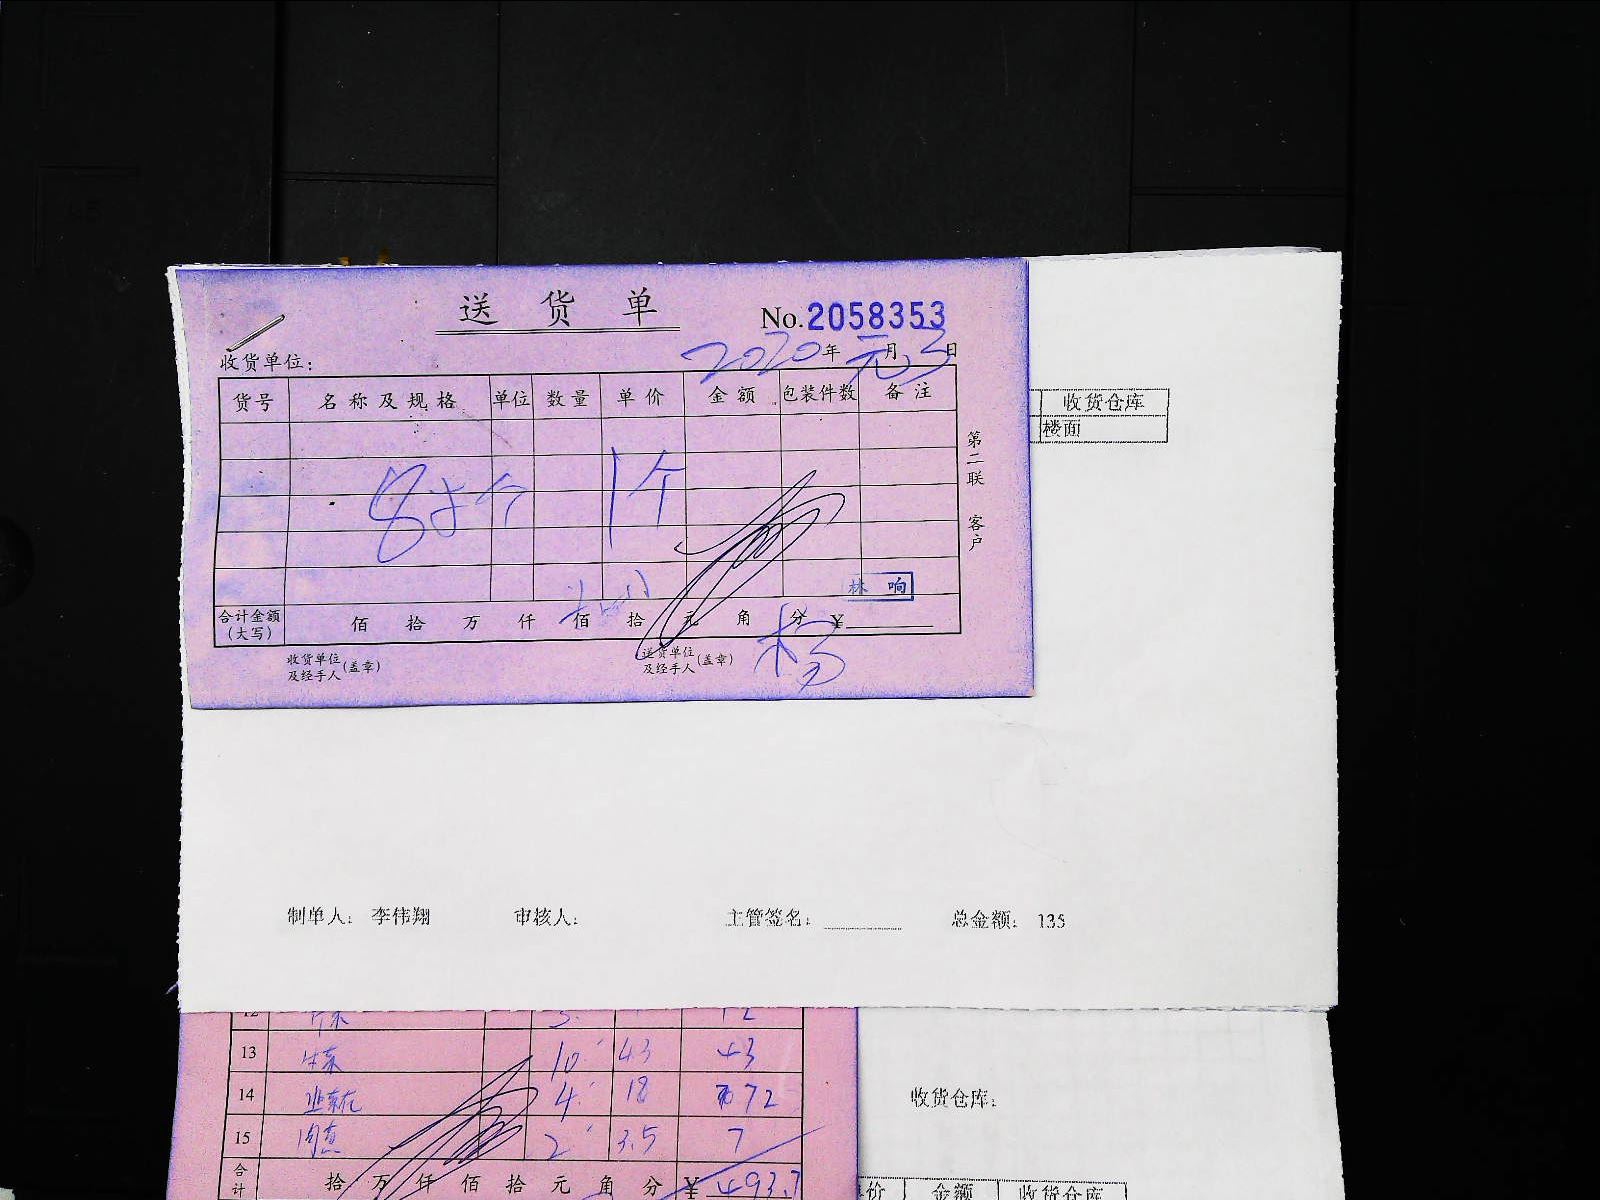 送货单
No.2058353
收货单位：
2020年元月3日
货号 名称及规格 单位 数量 单价 金额 包装件数 备注
8寸个 1个
第二联 客户
林响
合计金额(大写) 佰 拾 万 仟 佰 拾 元 角 分 ¥
收货单位及经手人(盖章) 送货单位及经手人(盖章) 杨
收货仓库
楼面
制单人： 李伟翔 审核人： 主管签名： 总金额： 135
12 3. 12
13 10 4.3 43
14 4 18 72
15 2 3.5 7
合计 拾 万 仟 佰 拾 元 角 分 ¥ 493.7
收货仓库：
价 金额 收货仓库